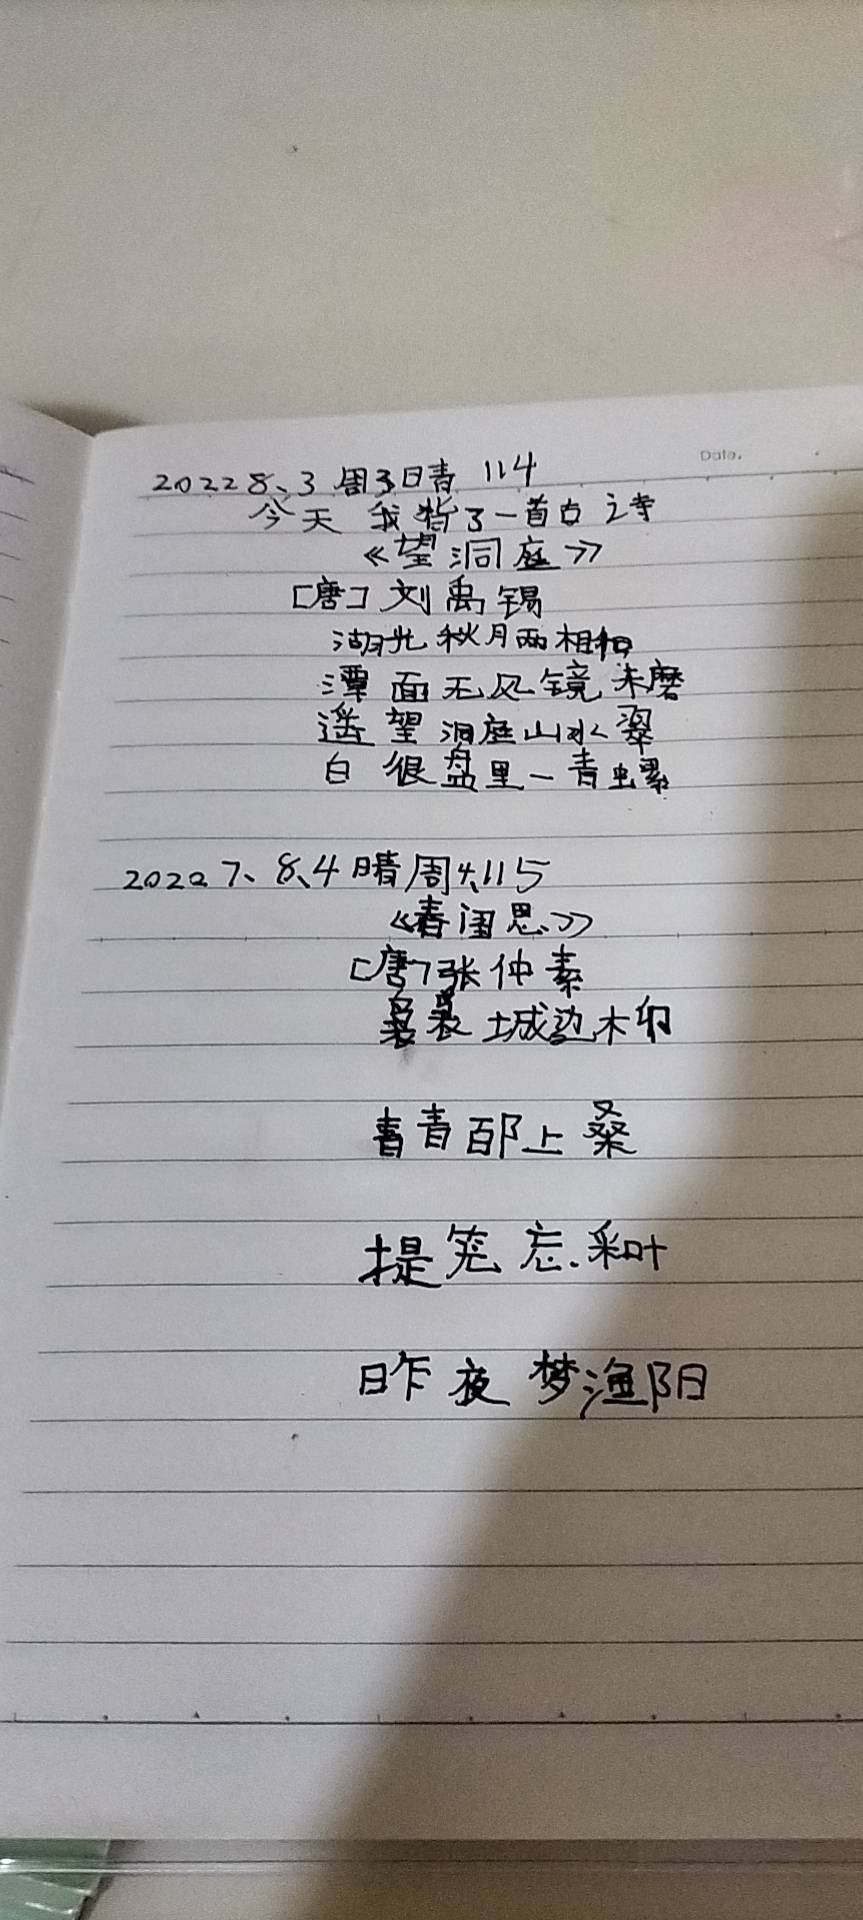 Date.
2022 8、3 周3晴 114
今天 我背了一首古诗
《望洞庭》
[唐] 刘禹锡
湖光秋月两相和
潭面无风镜未磨
遥望洞庭山水翠
白很盘里一青螺
2022 7、8、4晴周4、115
《春闺思》
[唐]张仲素
袅袅城边柳
青青陌上桑
提笼忘采叶
昨夜梦渔阳